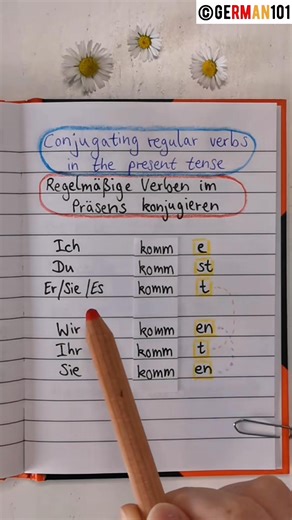 ©GERMAN101
Conjugating regular verbs
in the present tense
Regelmäßige Verben im
Präsens konjugieren
Ich komm e
Du komm st
Er/Sie/Es komm t
Wir komm en
Ihr komm t
Sie komm en